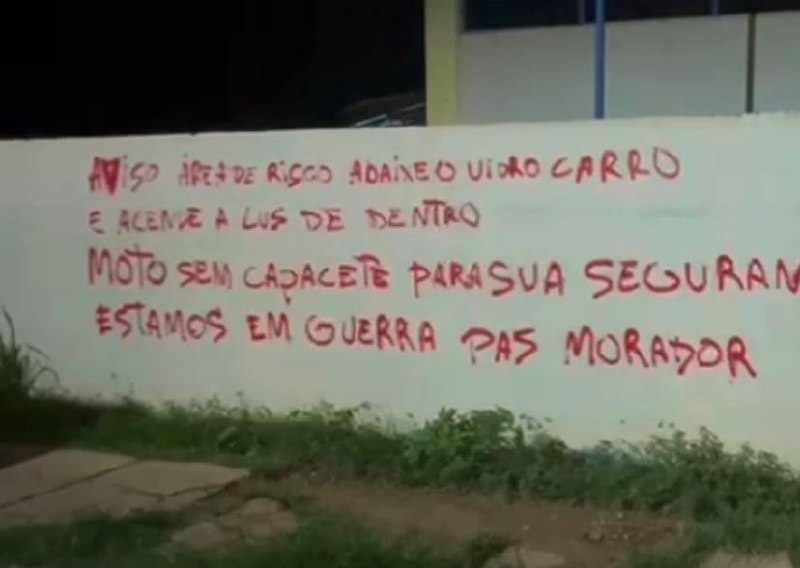 AVISO ÁREA DE RISCO ABAIXE O VIDRO CARRO
E ACENDE A LUS DE DENTRO
MOTO SEM CAPACETE PARA SUA SEGURAN
ESTAMOS EM GUERRA PAS MORADOR